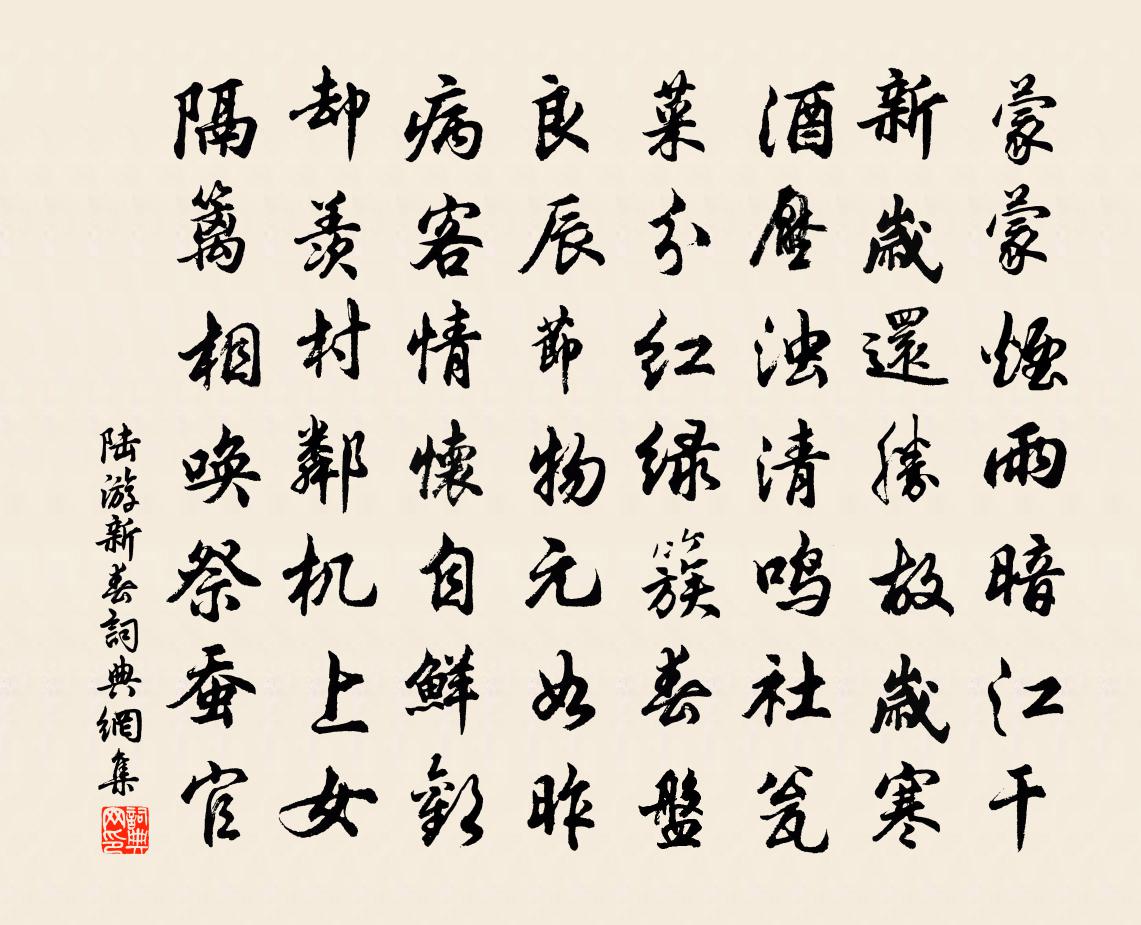 蒙蒙煙雨暗江干
新歲還勝故歲寒
酒壓浊清鸣社瓮
菜分红绿簇春盤
良辰節物元如昨
病客情懷自鮮歡
却羡村鄰机上女
隔籬相唤祭蚕官
陆游新春詞典網集
詞典网印